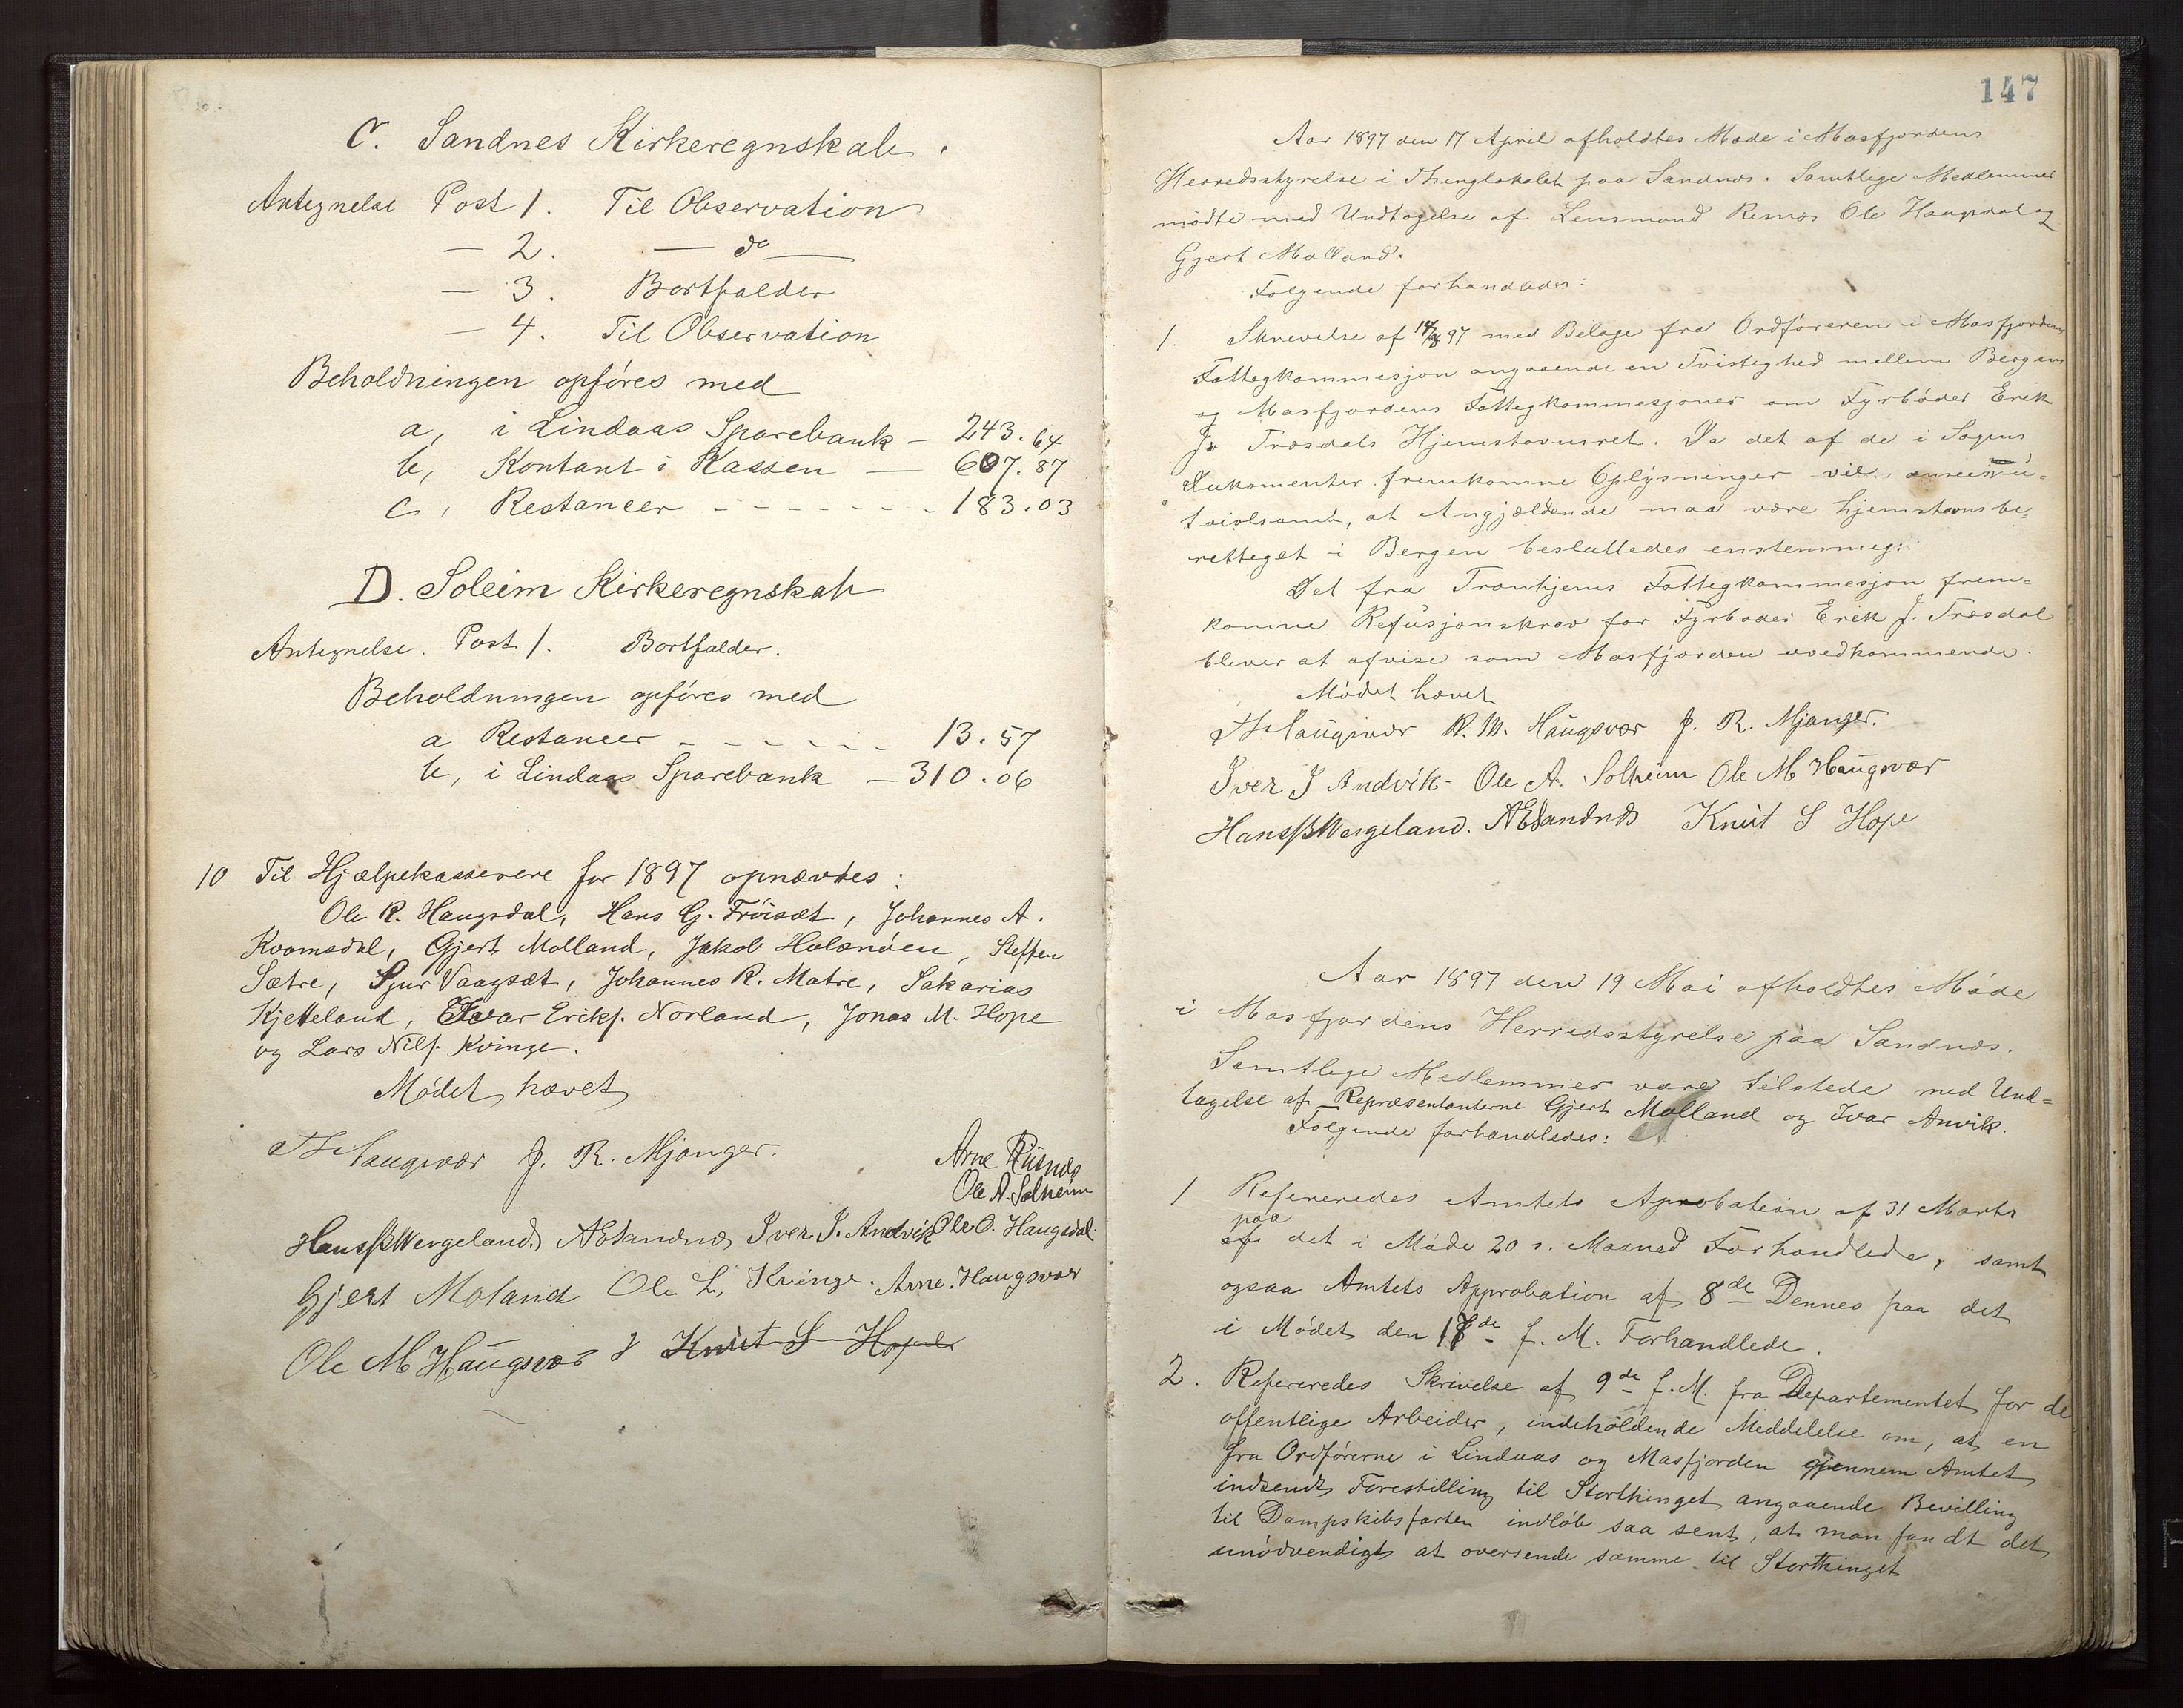 C. Sandnes Kirkeregnskab.
Antegnelse Post 1. Til Observation
— 2. — do —
— 3. Bortfalder
— 4. Til Observation
Beholdningen opføres med
a, i Lindaas Sparebank — 243.64
b, Kontant i Kassen — 607.87
c, Restancer - - - - - - - 183.03
D. Soleim Kirkeregnskab
Antegnelse. Post 1. Bortfalder.
Beholdningen opføres med
a Restancer - - - - - - 13.57
b, i Lindaas Sparebank — 310.06
10 Til Hjælpekasserere for 1897 opnævntes:
Ole R. Haugsdal, Hans G. Frøiset, Johannes A.
Kvamsdal, Gjert Molland, Jakob Holsnøen, Steffen
Sætre, Sjur Vaagsæt, Johannes R. Matre, Sakarias
Kjetteland, Ivar Eriks. Norland, Jonas M. Hope
og Lars Nils. Kvinge.
Mødet hævet
Haugsvær J. R. Mjanger. Arne Risnes
Ole A. Solheim
Hans B Wergeland. AESandnes Iver J. Andvik Ole O. Haugsdal
Gjert Moland Ole L, Kvinge. Arne. Haugsvær
Ole M Haugsvær Knut S Hope
147
Aar 1897 den 17 April afholdtes Møde i Masfjordens
Herredsstyrelse i Thinglokalet paa Sandnes. Samtlige Medlemmer
mødte med Undtagelse af Lensmand Risnes Ole Haugsdal og
Gjert Molland.
Følgende forhandledes:
1. Skrivelse af 97 med Bilage fra Ordføreren i Masfjordens
Fattigkommisjon angaaende en Tvistighed mellem Bergens
og Masfjordens Fattigkommisjoner om Fyrbøder Erik
J. Træsdals Hjemstavnsret. Da det af de i Sagens
Dukomenter fremkomne Oplysninger vil ansees u-
tvivlsomt, at Angjældende maa være hjemstavnsbe-
rettiget i Bergen besluttedes enstemmig:
Det fra Tronhjems Fattigkommisjon frem-
komne Refusjonskrav for Fyrbøder Erik J. Træsdal
bliver at afvise som Masfjorden uvedkommende.
Mødet hævet
Haugsvær R. M. Haugsvær J. R. Mjanger.
Iver J Andvik- Ole A. Solheim Ole M Haugsvær
Hans B Wergeland. AESandnes Knut S Hope
Aar 1897 den 19 Mai afholdtes Møde
i Masfjordens Herredsstyrelse paa Sandnes.
Samtlige Medlemmer vare tilstede med Und=
tagelse af Repræsentanterne Gjert Molland og Ivar Anvik.
Følgende forhandledes:
1 Refereredes Amtets Aprobation af 31 Marts
paa
af det i Møde 20 s. Maaned Forhandlede, samt
ogsaa Amtets Approbation af 8de Dennes paa det
i Mødet den 17de f. M. Forhandlede.
2. Refereredes Skrivelse af 9de f. M. fra Departementet for de
offentlige Arbeider, indeholdende Meddelelse om, at en
fra Ordførerne i Lindaas og Masfjorden gjennem Amtet
indsendt Forestilling til Storthinget angaaende Bevilling
til Dampskibsfarten indløb saa sent, at man fandt det
unødvendigt at oversende samme til Storthinget